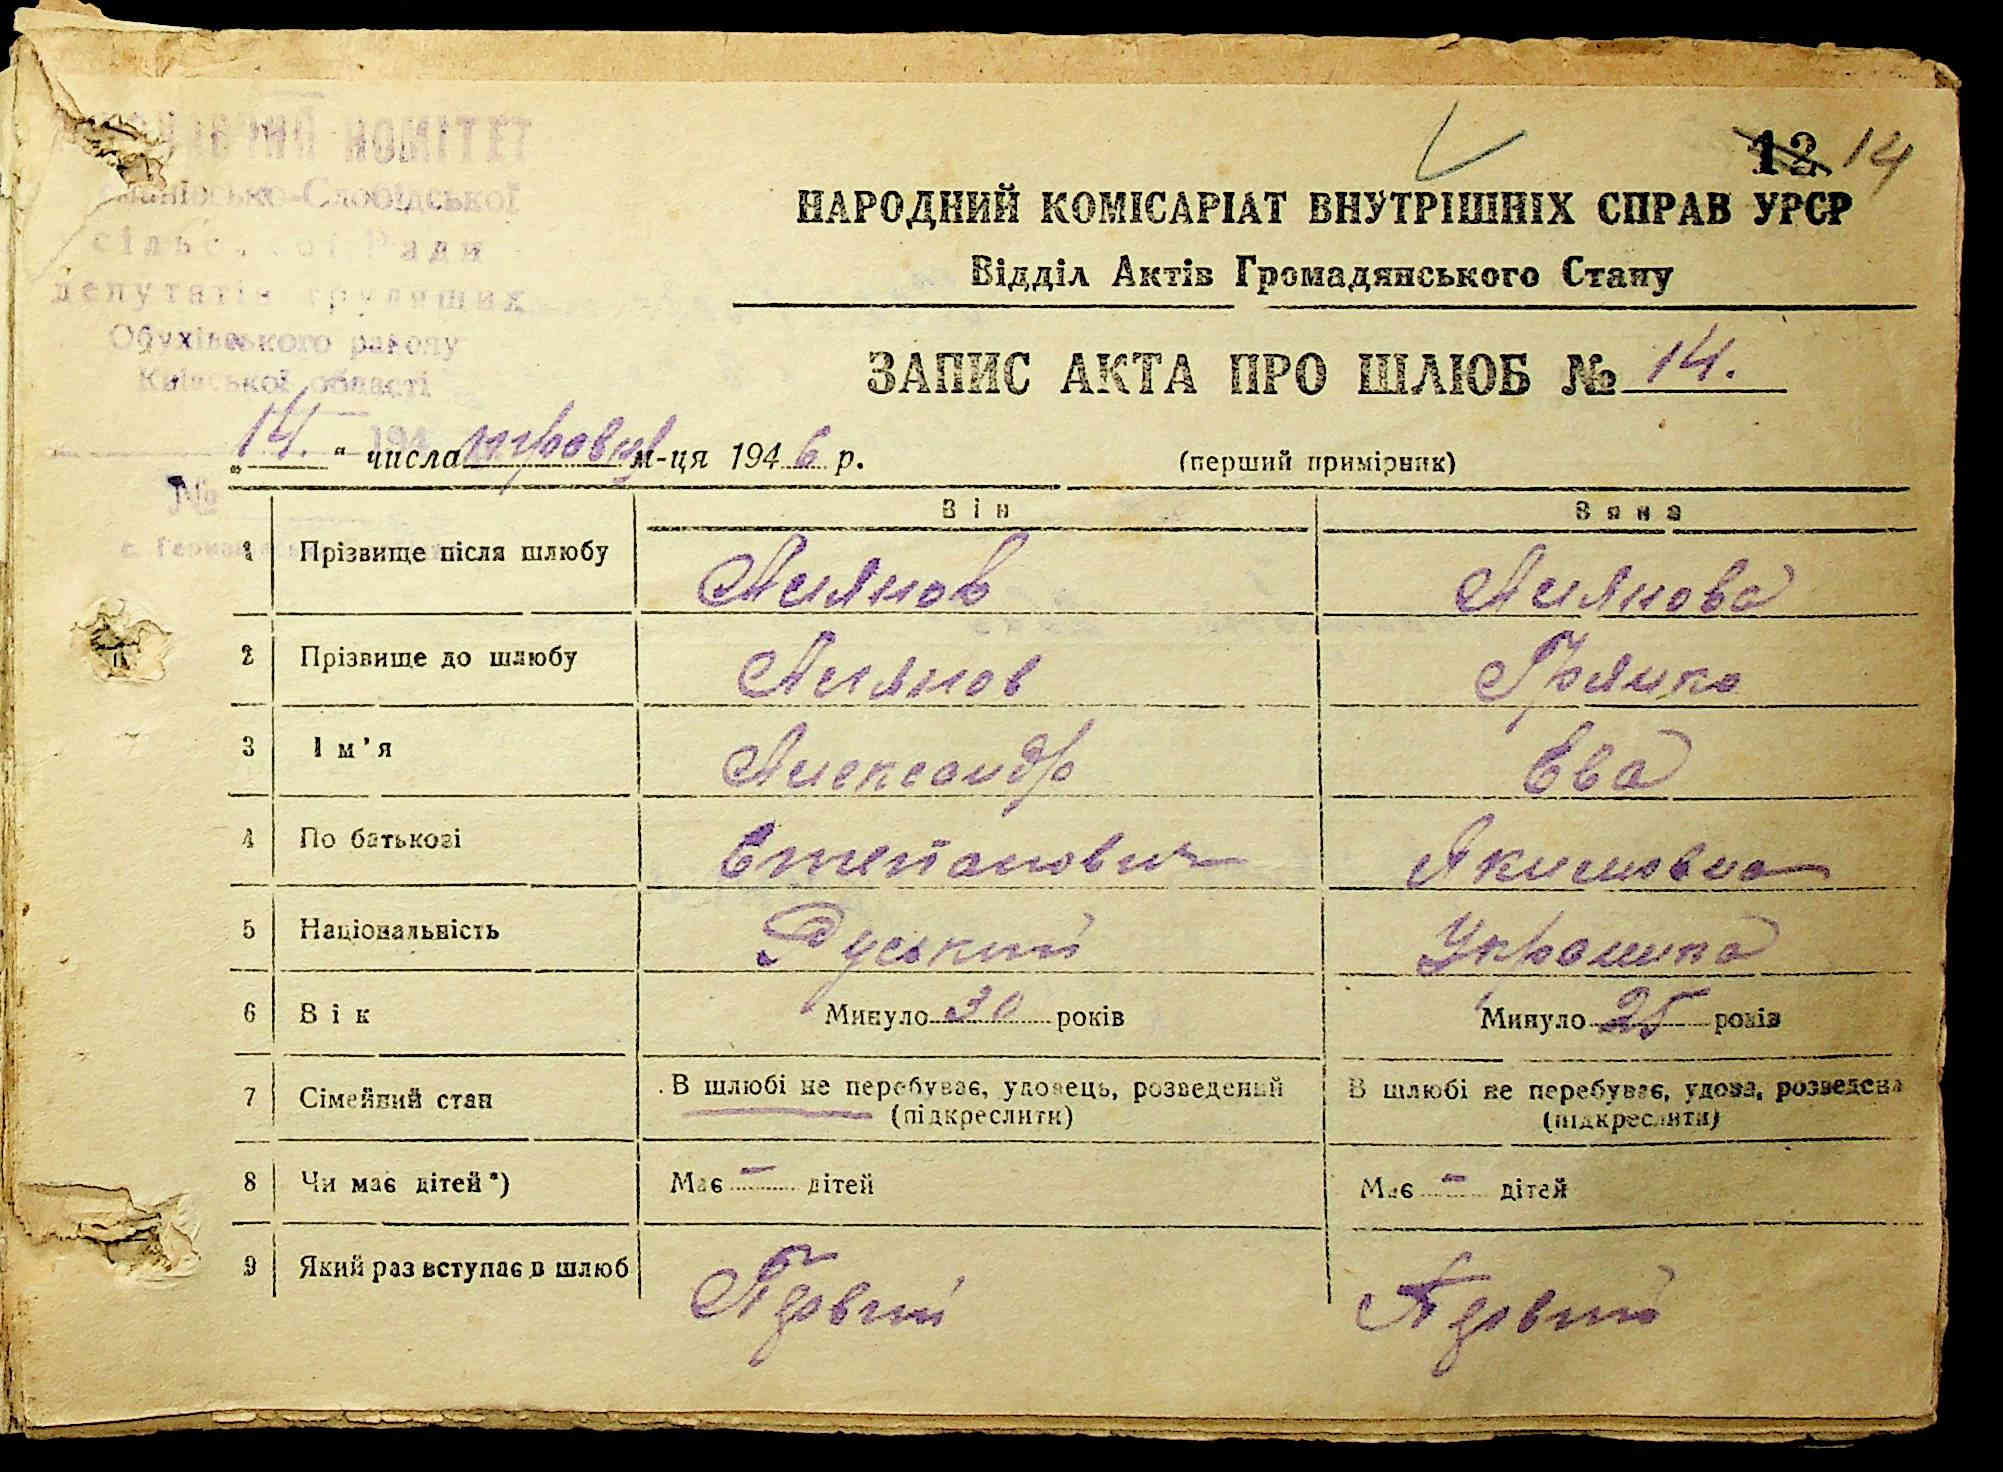 КОМІТЕТ
Слобідської
сільської Ради
депутатів трудящих
Обухівського району
Київської області
194
№
12 14
НАРОДНИЙ КОМІСАРІАТ ВНУТРІШНІХ СПРАВ УРСР
Відділ Актів Громадянського Стану
ЗАПИС АКТА ПРО ШЛЮБ № 14.
„14.“ числа травня м-ця 1946 р.
(перший примірник)
Він Вона
1 Прізвище після шлюбу
2 Прізвище до шлюбу
3 Ім'я Александр Ева
4 По батькові Степанович Якимовна
5 Національність Руський Украинка
6 Вік Минуло 30 років Минуло 25 років
7 Сімейний стан В шлюбі не перебуває, удовець, розведений (підкреслити) В шлюбі не перебуває, удова, розведена (підкреслити)
8 Чи має дітей*) Має – дітей Має – дітей
9 Який раз вступає в шлюб Первий Первий